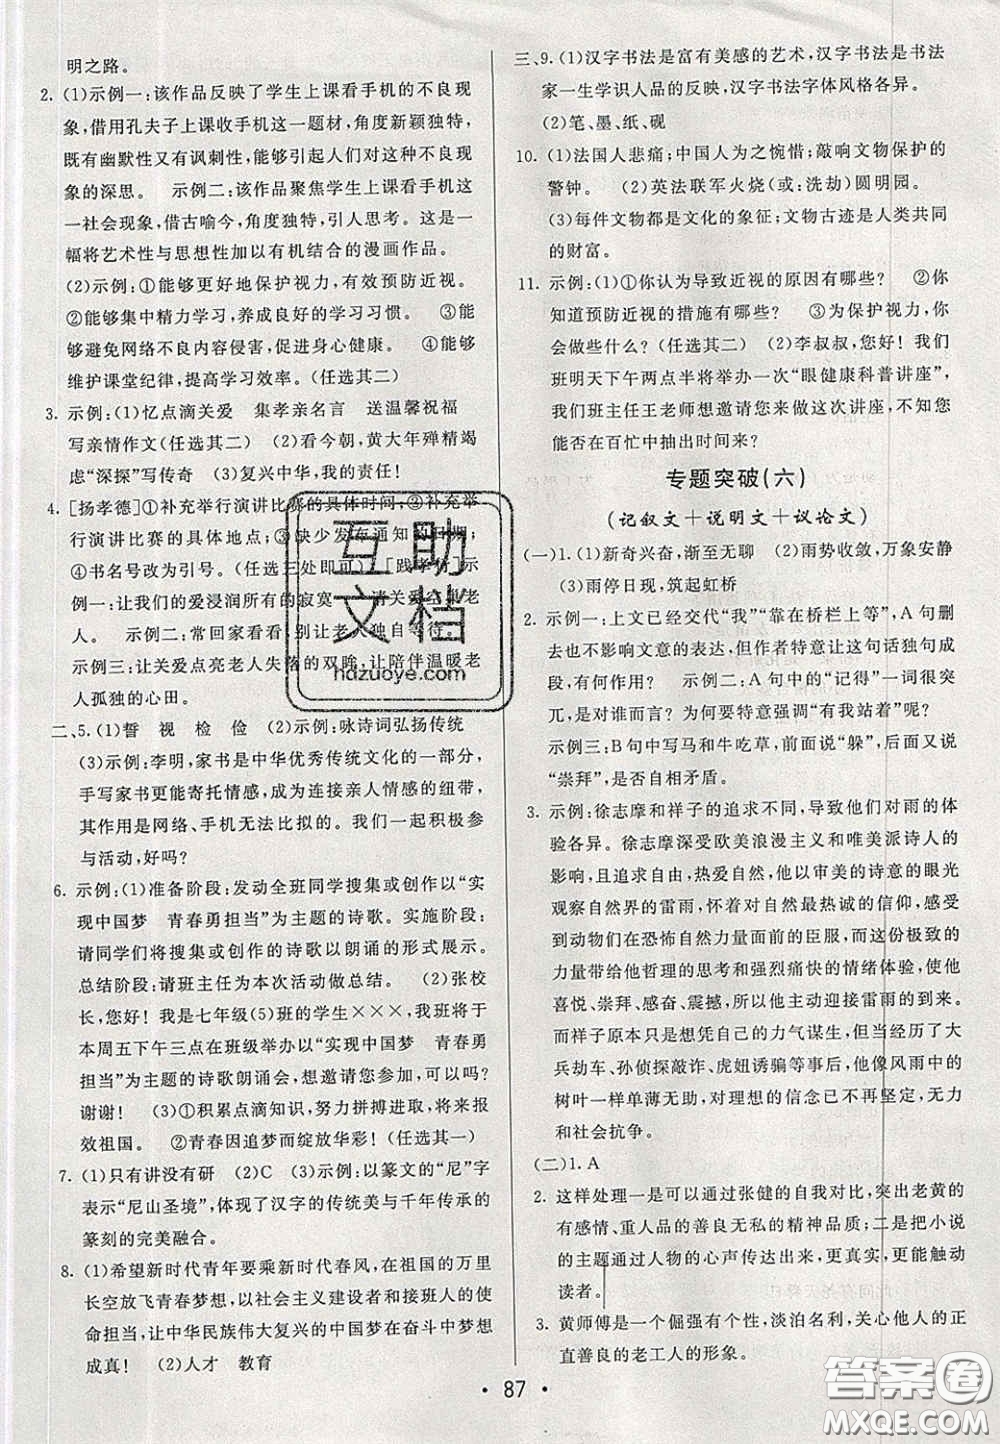 明之路。
2. (1)示例一:该作品反映了学生上课看手机的不良现
象,借用孔夫子上课收手机这一题材,角度新颖独特,
既有幽默性又有讽刺性,能够引起人们对不良社会现
象的深思。 示例二:该作品聚焦学生上课看手机这
一社会现象,借古喻今,角度独特,引人思考。这是一
幅将艺术性与思想性加以有机结合的漫画作品。
(2)示例:①能够更好地保护视力,有效预防近视。
②能够集中精力学习,养成良好的学习习惯。 ③能
够避免网络不良内容侵害,促进身心健康。 ④能够
维护课堂纪律,提高学习效率。(任选其二)
3. 示例:(1)忆点滴关爱 集孝亲名言 送温馨祝福
写亲情作文(任选其二) (2)看今朝,黄大年殚精竭
虑“深探”写传奇 (3)复兴中华,我的责任!
4. [扬孝德]①补充举行演讲比赛的具体时间;②补充举
行演讲比赛的具体地点;③缺少发布通知的日期;
④书名号改为引号。(任选三处即可) [践孝行]示
例一:让我们的爱浸润所有的寂寞——请关爱空巢老
人。 示例二:常回家看看,别让老人独自等待。
示例三:让关爱点亮老人失落的双眸,让陪伴温暖老
人孤独的心田。
二、5. (1)誓 视 检 俭 (2)示例:咏诗词弘扬传统
(3)示例:李明,家书是中华优秀传统文化的一部分,
手写家书更能寄托情感,成为连接亲人情感的纽带,
其作用是网络、手机无法比拟的。我们一起积极参
与活动,好吗?
6. 示例:(1)准备阶段:发动全班同学搜集或创作以“实
现中国梦 青春勇担当”为主题的诗歌。实施阶段:
请同学们将搜集或创作的诗歌以朗诵的形式展示。
总结阶段:请班主任为本次活动做总结。 (2)张校
长,您好!我是七年级(5)班的学生×××,我们将于
本周五下午三点在班级举办以“实现中国梦 青春勇
担当”为主题的诗歌朗诵会,想邀请您参加,可以吗?
谢谢! (3)①积累点滴知识,努力拼搏进取,将来报
效祖国。 ②青春因追梦而绽放华彩!(任选其一)
7. (1)只有讲没有研 (2)C (3)示例:以篆文的“尼”字
表示“尼山圣境”,体现了汉字的传统美与千年传承的
篆刻的完美融合。
8. (1)希望新时代青年要乘新时代春风,在祖国的万里
长空放飞青春梦想,以社会主义建设者和接班人的使
命担当,让中华民族伟大复兴的中国梦在奋斗中梦想
成真! (2)人才 教育
三、9. (1)汉字书法是富有美感的艺术,汉字书法是书法
家一生学识人品的反映,汉字书法字体风格各异。
(2)笔、墨、纸、砚
10. (1)法国人悲痛;中国人为之惋惜;敲响文物保护的
警钟。 (2)英法联军火烧(或:洗劫)圆明园。
(3)每件文物都是文化的象征;文物古迹是人类共同
的财富。
11. 示例:(1)①你认为导致近视的原因有哪些? ②你
知道预防近视的措施有哪些? ③为保护视力,你会
做些什么?(任选其二) (2)李叔叔,您好!我们
班明天下午两点半将举办一次“眼健康科普讲座”,
我们班主任王老师想邀请您来做这次讲座,不知您
能否在百忙中抽出时间来?
专题突破(六)
(记叙文+说明文+议论文)
(一)1. (1)新奇兴奋,渐至无聊 (2)雨势收敛,万象安静
(3)雨停日现,筑起虹桥
2. 示例一:上文已经交代“我”“靠在桥栏上等”,A句删
去也不影响文意的表达,但作者特意让这句话独句成
段,有何作用? 示例二:A句中的“记得”一词很突
兀,去掉如何? 为何要特意强调“有我站着”?
示例三:B句中写马和牛吃草,前面说“躲”,后面说
“崇拜”,是否自相矛盾。
3. 示例:徐志摩和祥子的追求不同,导致他们对雨的体
验各异。徐志摩深受欧美浪漫主义和唯美派诗人的
影响,且追求自由、自然,所以能以审美的态度和眼光
观察自然界的雷雨,获得对自然最热诚的信仰,能感
受到动物们在恐怖自然力量面前的臣服,而这份极致的
力量带给他哲理的思考和强烈痛快的情绪体验,使他
喜悦、崇拜、感奋、震撼,所以他主动迎接雷雨的到来。
而祥子原本只是想凭自己的力气谋生,但经历了大
兵劫车、孙侦探敲诈、虎妞诱骗等事后,他像风雨中的
树叶一样单薄无助,对理想的信念已不再坚定,无力
和社会抗争。
(二)1. A
2. 这样处理一是可以通过张健的自我对比,突出老黄的
有感情、重人品的善良无私的精神品质;二是把小说
的主题通过人物的心声传达出来,更真实,更能触动
读者。
3. 黄师傅是一个倔强有个性,淡泊名利,关心他人的正
直善良的老工人的形象。
• 87 •
互助文档
hdzuoye.com
答案圈
MXQE.COM